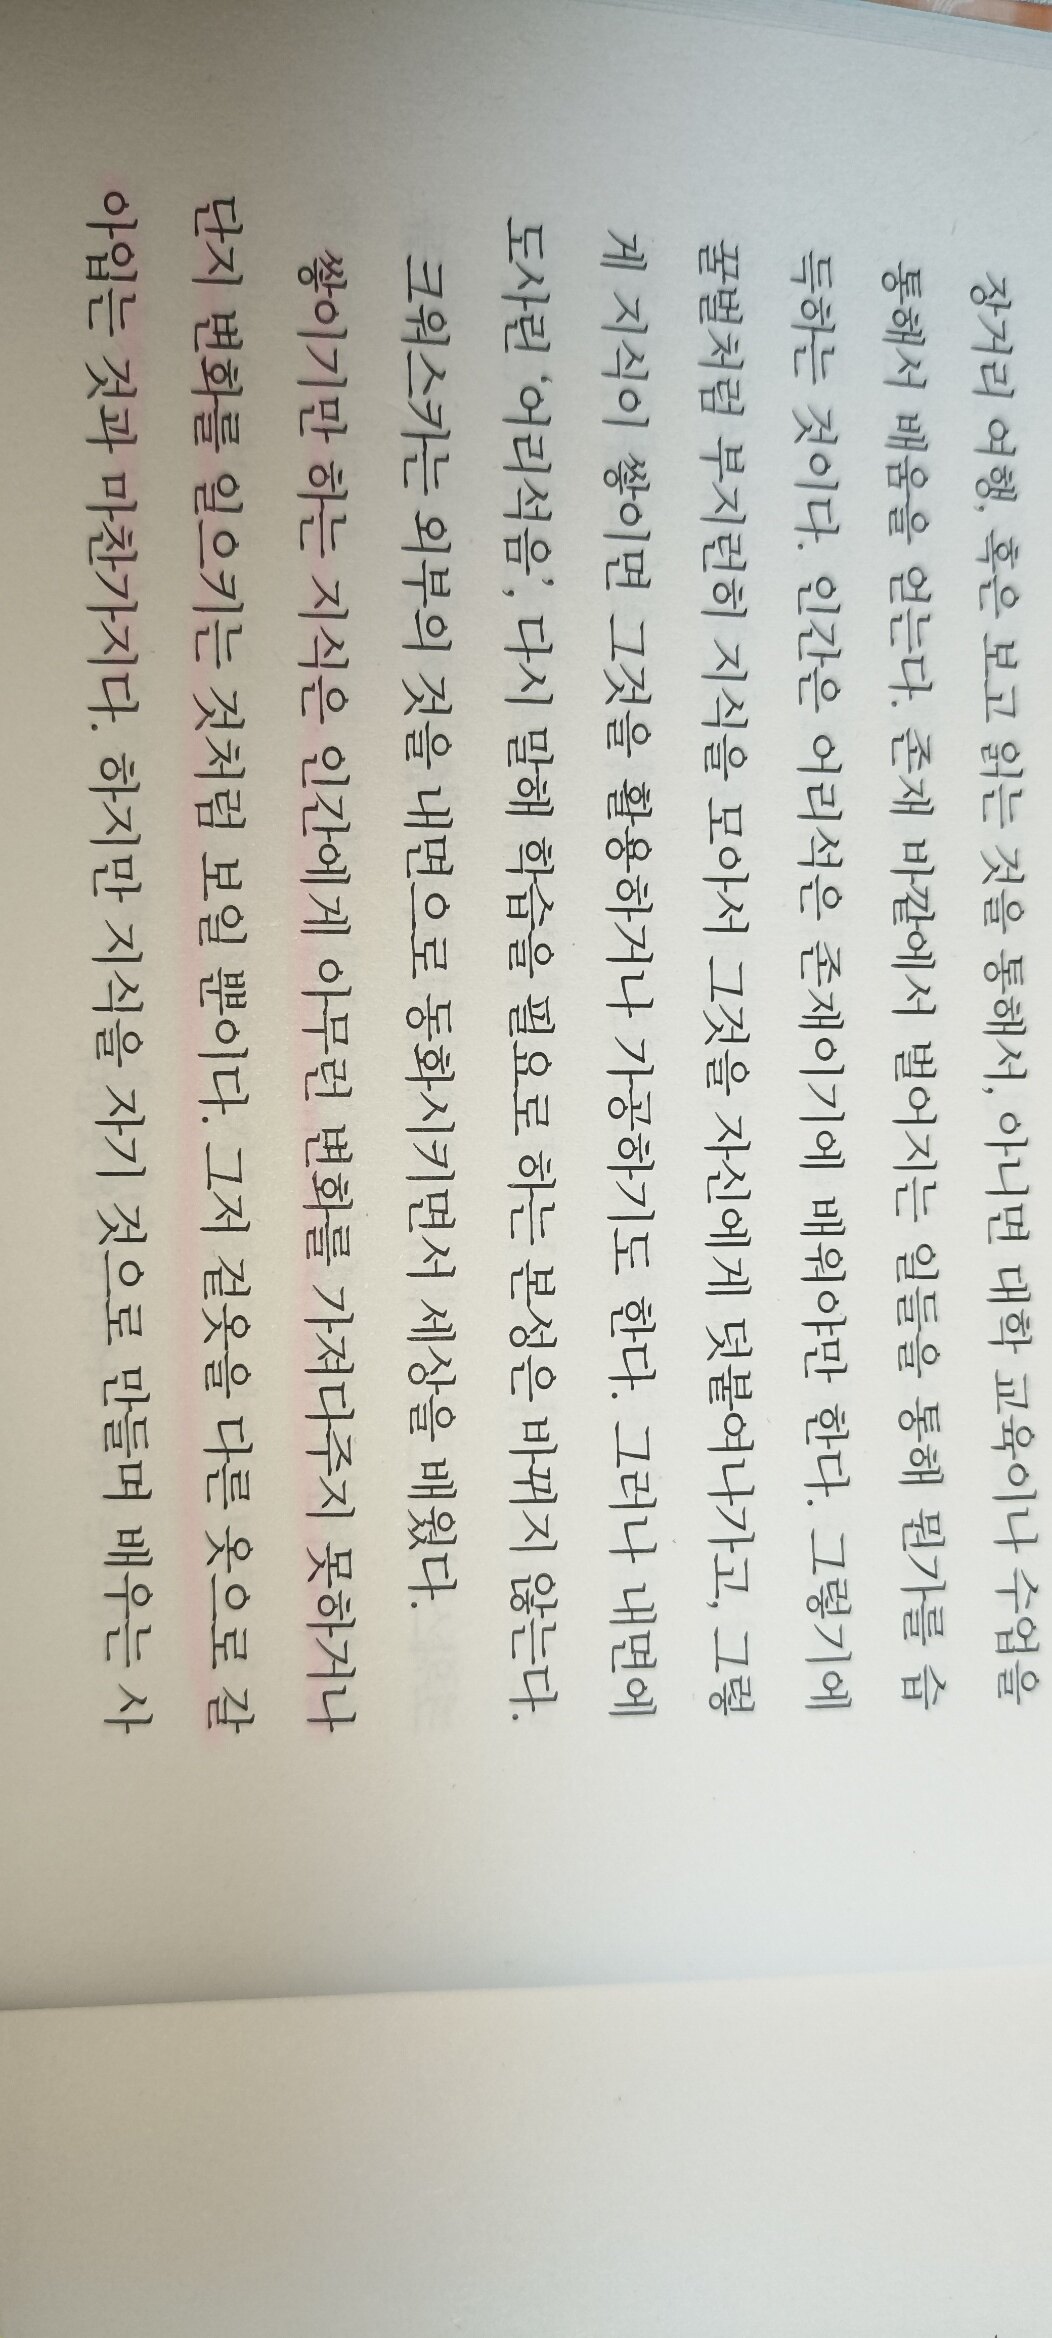 장거리 여행, 혹은 보고 읽는 것을 통해서, 아니면 대학 교육이나 수업을
통해서 배움을 얻는다. 존재 바깥에서 벌어지는 일들을 통해 뭔가를 습
득하는 것이다. 인간은 어리석은 존재이기에 배워야만 한다. 그렇기에
꿀벌처럼 부지런히 지식을 모아서 그것을 자신에게 덧붙여나가고, 그렇
게 지식이 쌓이면 그것을 활용하거나 가공하기도 한다. 그러나 내면에
도사린 ‘어리석음’, 다시 말해 학습을 필요로 하는 본성은 바뀌지 않는다.
크워스카는 외부의 것을 내면으로 동화시키면서 세상을 배웠다.
쌓이기만 하는 지식은 인간에게 아무런 변화를 가져다주지 못하거나
단지 변화를 일으키는 것처럼 보일 뿐이다. 그저 겉옷을 다른 옷으로 갈
아입는 것과 마찬가지다. 하지만 지식을 자기 것으로 만들며 배우는 사